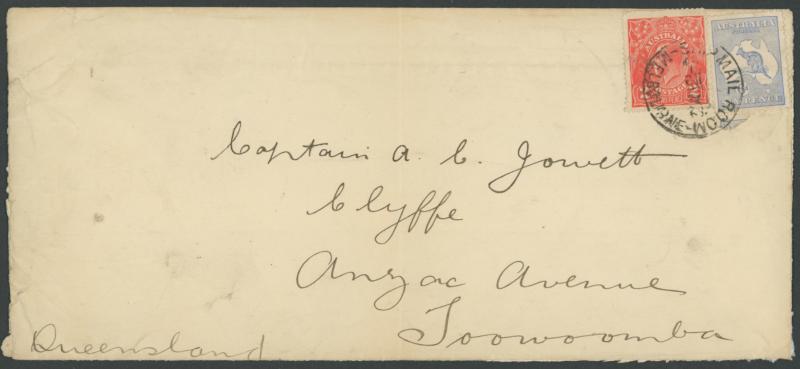 AUSTRALIA
AUSTRALIA
POSTAGE
POSTAGE
PENCE
MAIL ROOM
-MELBOURNE-
Captain A. C. Jowett
Clyffe
Anzac Avenue
Toowoomba
Queensland